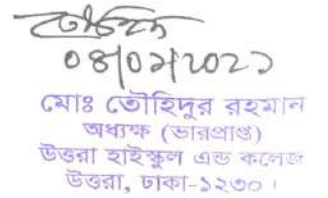 ০৪/০২/২০২১
মোঃ তৌহিদুর রহমান
অধ্যক্ষ (ভারপ্রাপ্ত)
উত্তরা হাইস্কুল এন্ড কলেজ
উত্তরা, ঢাকা-১২৩০।